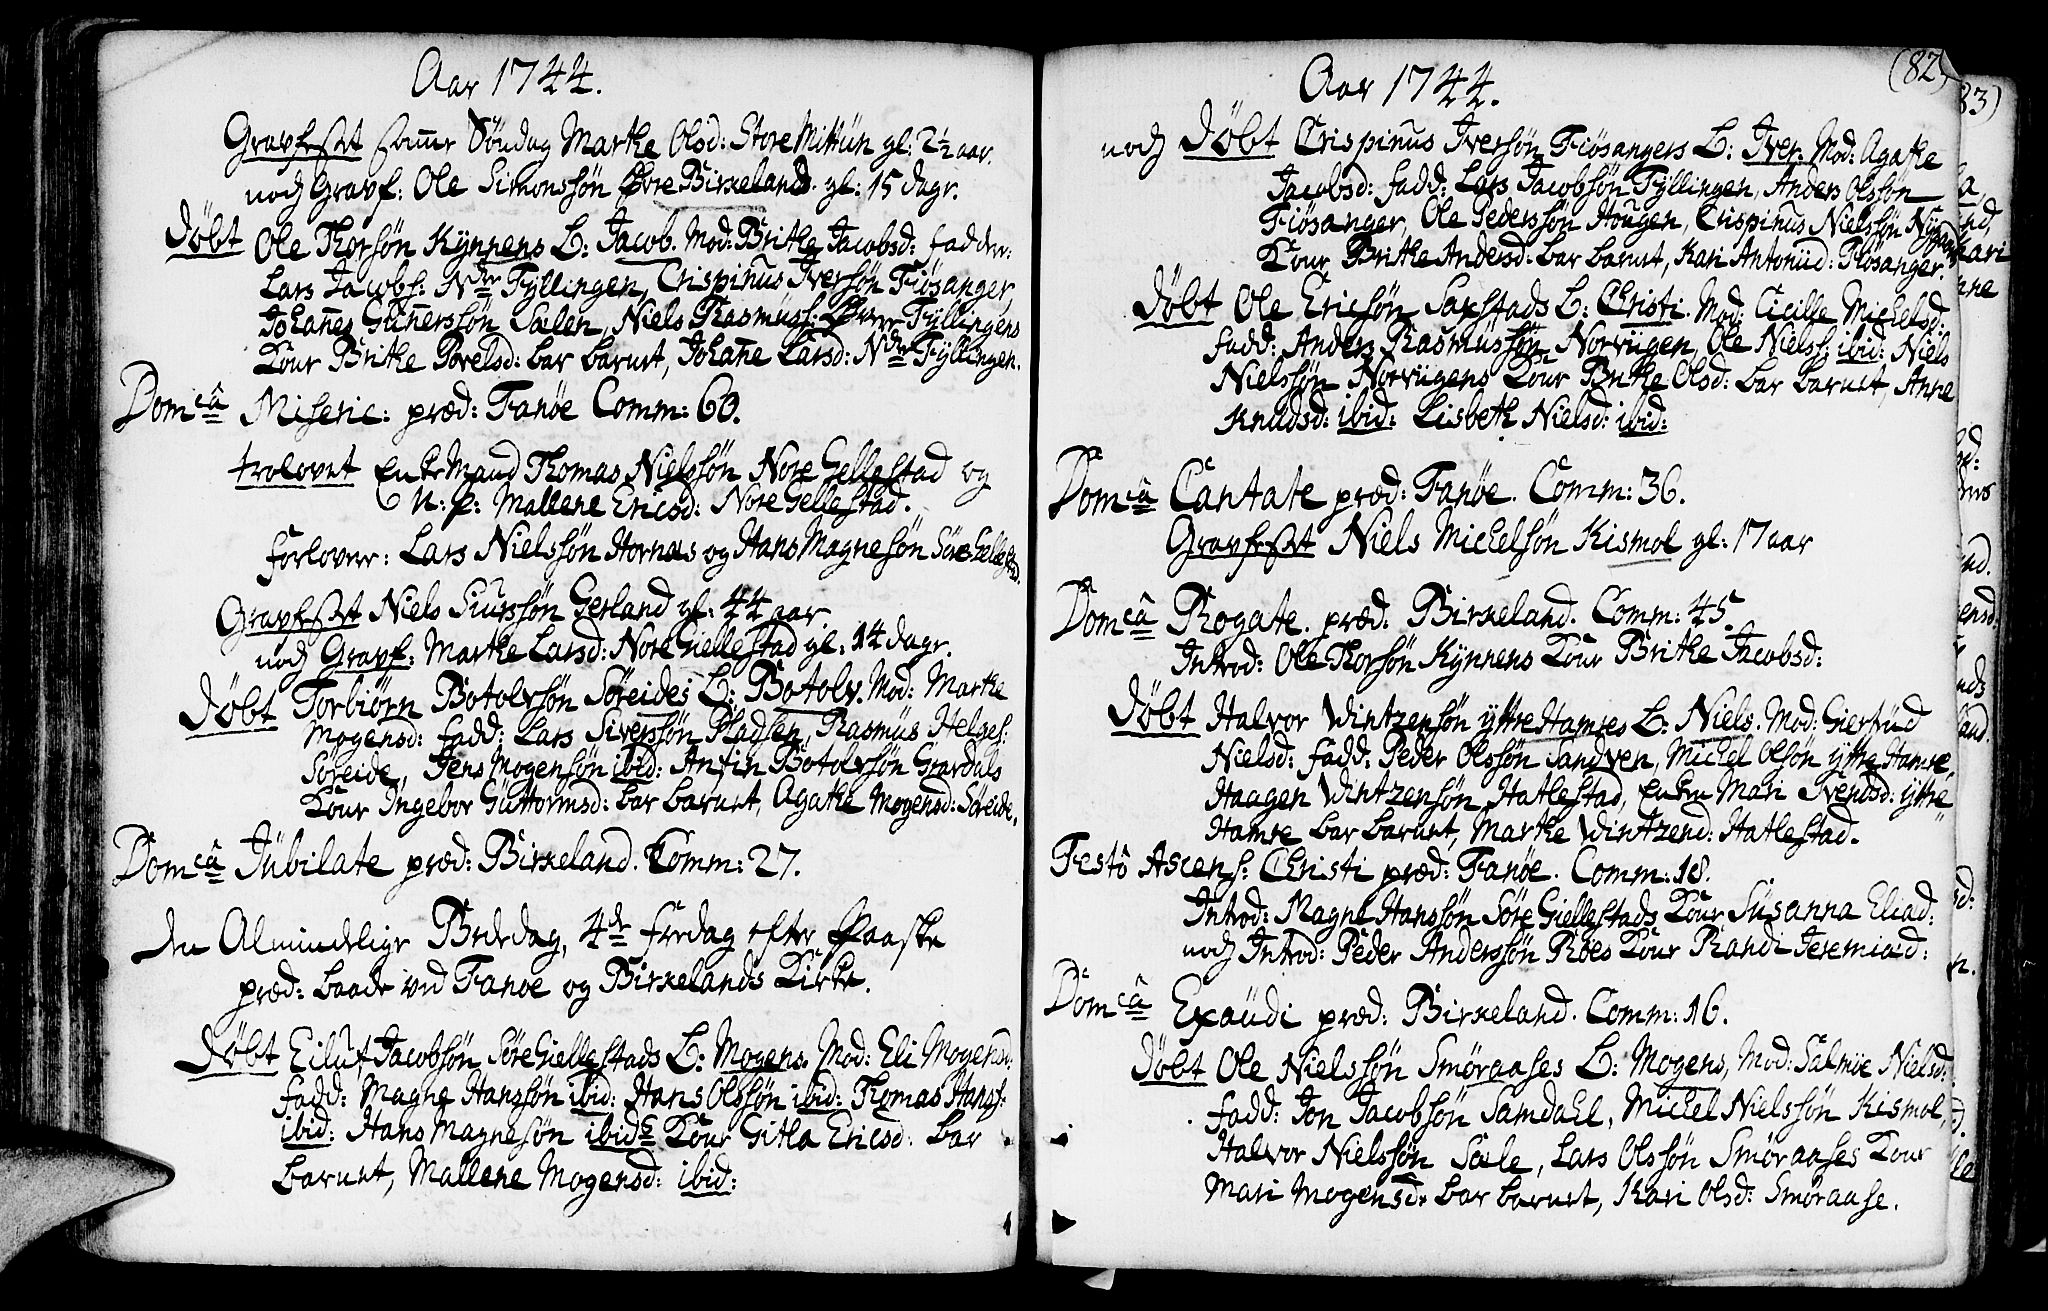 Aar 1744.
Gravfæst samme Söndag Marthe Olsd: Store Mittün gl: 2½ aar.
noch Gravf: Ole Simonssön Øvre Birkeland. gl: 15 dage.
Döbt Ole Thorsön Kynnens B: Jacob. Mod: Brithe Jacobsd: fadder:
Lars Jacobs: Ndre Fyllingen, Crispinus Iversön Fiösanger,
Johañes Guñerssön Sælen, Niels Rasmüss: Øvre Fyllingens
Kone Brithe Povelsd: bar barnet, Johañe Larsd: Ndre Fyllingen.
Domcâ Miseric: præd: Fanöe Comm: 60.
trolovet Enke Mand Thomas Nielssön Nore Gellestad og
N: p: Mallene Ericsd: Nore Gellestad.
forlovere: Lars Nielssön Hornæs og Hans Magnesön Söre Gellestad.
Gravfæst Niels Siurssön Gerland gl: 44 aar.
noch Gravf: Marthe Larsd: Nore Giellestad gl: 14 dage.
Döbt Torbiörn Botolvsön Söreides B: Botolv. Mod: Marthe
Mogensd: fadd: Lars Siverssön Pladsen, Rasmüs Helges:
Söreide, Jens Mogensön ibid: Anfin Botolvsön Gravdals
Kone Ingebor Güttormsd: bar barnet, Agathe Mogensd: Söreide.
Domcâ Jübilate præd: Birkeland. Comm: 27.
den Almindelige Bededag, 4de fredag efter Paaske
præd: baade ved Fanøe og Birkelands Kirke.
Döbt Eiluf Jacobsön Söre Giellestads B: Mogens. Mod: Eli Mogensd:
fadd: Magne Hanssön ibid: Hans Olssön ibid: Thomas Hanss:
ibid: Hans Magnesön ibids Kone Gitla Ericsd. bar
barnet, Mallene Mogensd: ibid:
(82)
Aar 1744.
noch Döbt Crispinus Iversön Fiösangers B: Iver. Mod: Agathe
Jacobsd: fadd: Lars Jacobsön Fyllingen, Anders Olssön
Fiösanger, Ole Pederssön Hougen, Crispinus Nielssön
Kone Brithe Andersd: bar barnet, Kari Antoniid: Fiösanger.
Döbt Ole Ericsön Saxstads B: Christi. Mod: Cicille Michelsd:
fadd: Anders Rasmüssön Norviigen, Ole Niels: ibid: Niels
Nielssön Norviigens Kone Brithe Olsd: bar barnet, Anne
Knudsd: ibid: Lisbeth Nielsd: ibid:
Domcâ Cantate præd: Fanøe. Comm: 36.
Gravfæst Niels Michelsön Kismol gl: 17 aar
Domcâ Rogate. præd: Birkeland. Comm: 45.
Introd: Ole Thorsön Kynnens Kone Brithe Jacobsd:
Döbt Halvor Wintzensön yttre Hamres B: Niels. Mod: Giertrüd
Nielsd: fadd: Peder Olssön Sandven, Michel Olsön yttre Hamre,
Haagen Wintzensön Hatlestad, Enken Mari Ivendsd: yttre
Hamre bar barnet, Marthe Wintzend: Hatlestad.
Festô Ascens: Christi præd: Fanøe. Comm: 18.
Introd: Magne Hanssön Söre Giellestads Kone Susanna Eliad:
noch Introd: Peder Anderssön Röes Kone Randi Jeremiæd:
Domcâ Exaüdi præd: Birkeland. Comm: 16.
Döbt Ole Nielssön Smøraases B: Mogens, Mod: Salmöe Nielsd:
fadd: Jon Jacobsön Samdahl, Michel Nielssön Kismol,
Halvor Nielssön Sæle, Lars Olssön Smøraases Kone
Mari Mogensd: bar barnet, Kari Olsd: Smøraase.